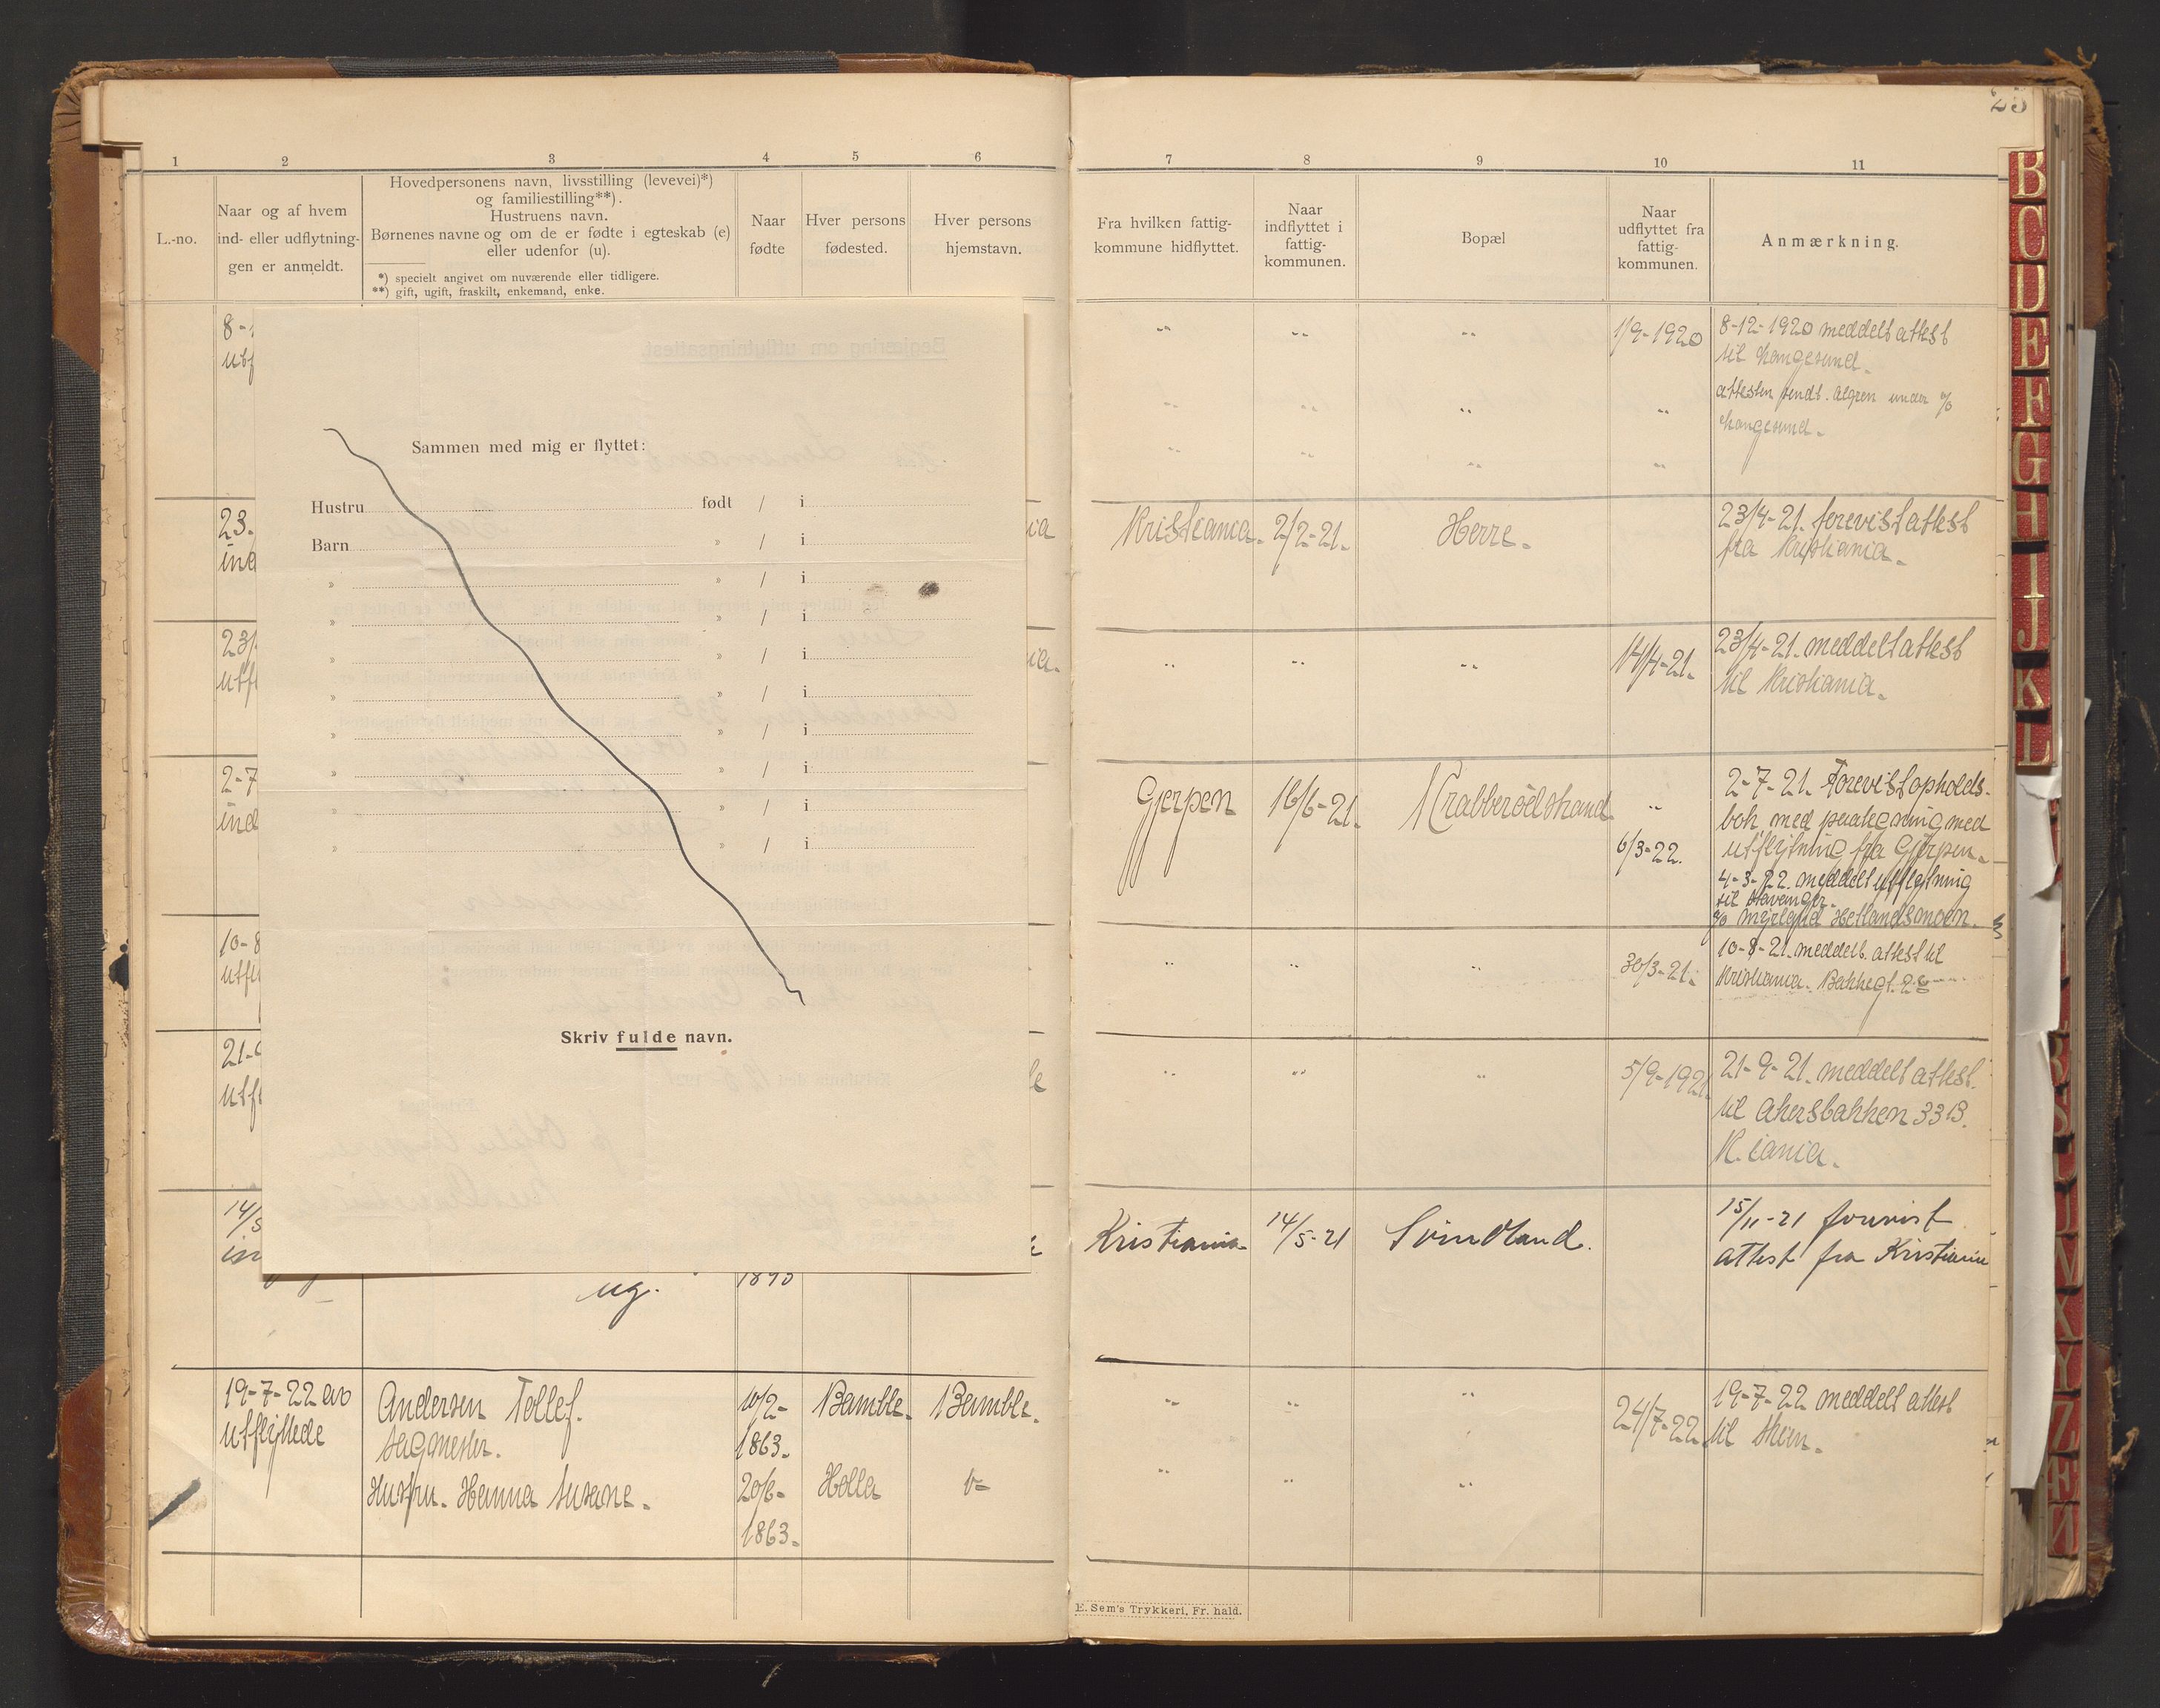 25
1 2 3 4 5 6
L.-no.
Naar og af hvem
ind- eller udflytnin-
gen er anmeldt.
Hovedpersonens navn, livsstilling (levevei)*)
og familiestilling**).
Hustruens navn.
Børnenes navne og om de er fødte i egteskab (e)
eller udenfor (u).
*) specielt angivet om nuværende eller tidligere.
**) gift, ugift, fraskilt, enkemand, enke.
Naar
fødte
Hver persons
fødested.
Hver persons
hjemstavn.
Sammen med mig er flyttet:
Hustru født / i
Barn » / i
» » / i
» » / i
» » / i
» » / i
» » / i
» » / i
» » / i
» » / i
Skriv fulde navn.
23.
2-7
10-8
14/5
ug. 1895
19-7-22 av
utflyttede
Andersen Tollef.
sagmester.
10/2-
1863.
Bamble. Bamble.
Hustru. Hanna Susane.
20/6-
1863.
Holla
7 8 9 10 11
Fra hvilken fattig-
kommune hidflyttet.
Naar
indflyttet i
fattig-
kommunen.
Bopæl
Naar
udflyttet fra
fattig-
kommunen.
Anmærkning.
1/9-1920
8-12-1920 meddelt attest
til Haugesund.
attesten sendt. Algren under %
Haugesund.
Kristiania. 2/2-21. Herre.
23/4-21. forevist attest
fra Kristiania.
14/4-21.
23/4-21. meddelt attest
til Kristiania.
Gjerpen 16/6-21. Krabberødstrand
6/3-22.
2-7-21. Forevist opholds-
bok med paategning med
utflytning fra Gjerpen.
4-3-22. meddelt utflytning
til Stavanger.
30/3-21.
10-8-21. meddelt attest til
Kristiania. Bakkegt. 28
5/9-1921.
21-9-21. meddelt attest.
til Akersbakken 33 B.
K.iania.
Kristiania 14/5-21 Svindland.
15/11-21 forevist
attest fra Kristiania
24/7-22.
19-7-22 meddelt attest
til Skien.
E. Sem's Trykkeri, Fr. hald.
B
C
D
E
F
G
H
I
J
K
L
V
X
Y
Z
Æ